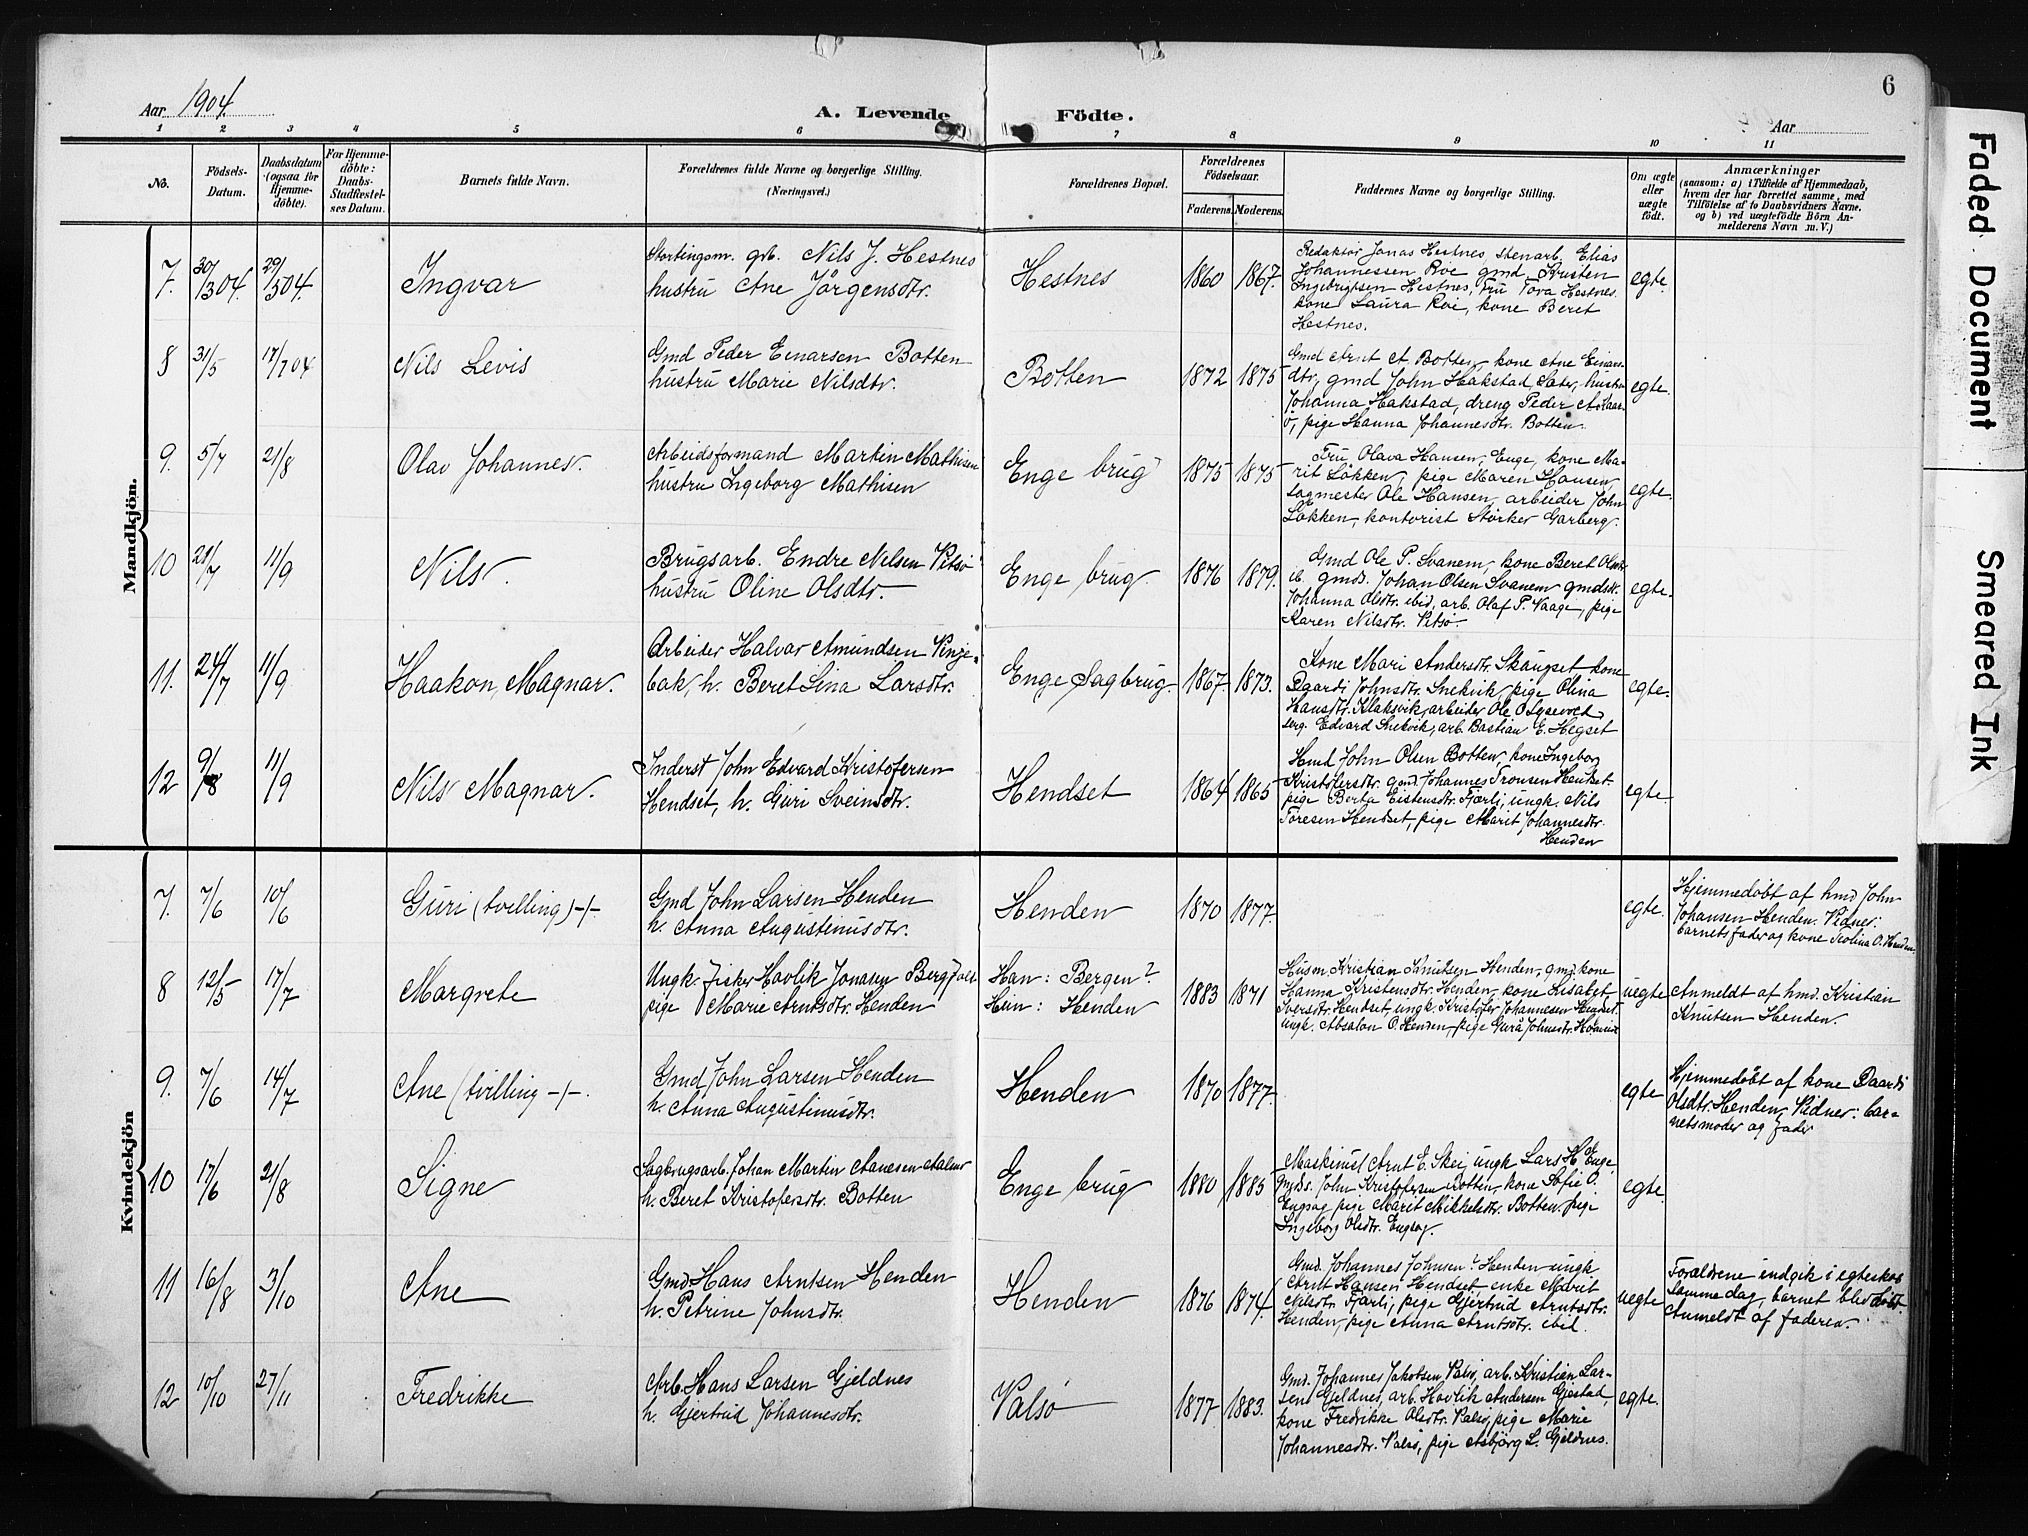 6
Aar 1904.
A. Levende Födte.
Aar
1 2 3 4 5 6 7 8 9 10 11
No.
Födsels-
Datum.
Daabsdatum
(ogsaa for
Hjemme-
döbte).
For Hjemme-
döbte:
Daabs-
Stadfæstel-
ses Datum.
Barnets fulde Navn.
Forældrenes fulde Navne og borgerlige Stilling.
(Næringsvei.)
Forældrenes Bopæl.
Forældrenes
Födselsaar.
Faderens. Moderens.
Faddernes Navne og borgerlige Stilling.
Om ægte
eller
uægte
født.
Anmærkninger
(saasom: a) i Tilfælde af Hjemmedaab,
hvem der har forrettet samme, med
Tilföielse af to Daabsvidners Navne,
og b) ved uægtefödte Börn An-
melderens Navn m. V.)
Mandkjön.
7. 30/3 04. 29/5 04. Ingvar
Stortingsm. grb. Nils J. Hestnes
hustru Ane Jörgensdtr.
Hestnes 1860 1867.
Redaktör Jonas Hestnes, stenarb. Elias
Johannessen Roe gmd. Kristen
Ingebrigtsen Hestnes, Fru Tora Hestnes.
kone Laura Roe, kone Beret
Hestnes.
egte.
8 31/5 17/7 04 Nils Levis
Gmd Peder Einarsen Botten
hustru Marie Nilsdtr.
Botten 1872 1875
Gmd Arnt A. Botten, kone Ane Einars-
dtr, gmd John Hakstad, Sater, hustru
Johanna Hakstad, dreng Peder A. Kaar-
ö, pige Hanna Johannesdtr. Botten.
egte.
9. 5/7 21/8 Olav Johannes.
Arbeidsformand Martin Mathisen
hustru Ingeborg Mathisen
Enge brug 1875 1875
Fru Olava Hansen, Enge, kone Ma-
rit Lökken, pige Maren Hansen
sagmester Ole Hansen, arbeider John
Løkken, kontorist Störker Garberg.
egte.
10 21/7 11/9 Nils.
Brugsarb. Endre Nilsen Vitsö
hustru Oline Olsdtr.
Enge brug. 1876 1879.
Gmd Ole P. Svanem, kone Beret Olsdtr
ib. gmds. Johan Olsen Svanem gmdsdt.
Johanna Olsdtr. ibid, arb. Olaf P. Vaage, pige
Karen Nilsdtr. Vitsö.
egte.
11. 24/7 11/9 Haakon Magnar.
Arbeider Halvar Amundsen Vinje-
bak, h. Beret Lina Larsdtr.
Enge Sagbrug. 1867 1873.
Kone Mari Andersdtr. Skaugset kone
Daardi Johnsdtr. Snekvik, pige Olina
Hansdtr. Klaksvik, arbeider Ole O Lysevold
arg. Edvard Snekvik, arb. Bastian E. Hegset
egte.
12 9/8 11/9 Nils Magnar.
Inderst John Edvard Kristofersen
Hendset, h. Guri Sveinsdtr.
Hendset 1864 1865
Hmd John Olsen Botten, kone Ingeborg
Kristofersdtr. gmd. Johannes Tronsen Hendset.
pige Berta Eistensdtr. Fjærli, ungk. Nils
Toresen Hendset, pige Marit Johannesdtr.
Henden
egte.
Kvindekjön
7. 7/6 10/6 Guri (tvilling) -/-
Gmd John Larsen Henden
h. Anna Augustinusdtr.
Henden 1870 1877.
egte.
Hjemmedöbt af hmd John
Johansen Henden. Vidner:
barnets fader og kone Teolina O. Henden.
8 12/5 17/7 Margrete
Ungk. fisker Havlik Jonasen Berg
pige Marie Arntsdtr. Henden
Han: Bergen?
Hun: Henden
1883 1871
Husm. Kristian Knutsen Henden, gmd kone
Hanna Kristensdtr. Henden, kone Lisabet
Iversdtr. Hendset, ungk. Kristofer Johannesen Hendset.
ungk. Absalon O. Henden, pige Gurå Johnsdtr.
uegte
Anmeldt af hmd. Kristian
Knutsen Henden.
9. 7/6 14/7 Ane (tvilling -/-.
Gmd John Larsen Henden
h. Anna Augustinusdtr.
Henden 1870 1877.
egte
Hjemmedöbt af kone Daardi
Olsdtr. Henden, Vidner: bar-
nets moder og fader
10 17/6 21/8 Signe
Sagbrugsarb. Johan Martin Aanesen
h. Beret Kristofersdtr. Botten
Enge brug 1880 1885
Maskinist Arnt E. Skei, ungk Lars H. Enge,
gmds. John Kristofersen Botten, kone Sofie O.
Engsag pige Marit Mikkelsdtr. Botten. pige
Ingeborg Olsdtr. Engsag.
egte.
11 16/8 3/10 Ane
Gmd. Hans Arntsen Henden
h. Petrine Johnsdtr.
Henden 1876 1874.
Gmd. Johannes Johnsen? Henden ungk
Arnt Hansen Hendset enke Marit
Nilsdtr. Fjærli, pige Gjertrud Arntsdtr.
Henden, pige Anna Arntsdtr. ibid.
uegte
Forældrene indgik i egteskab
samme dag, barnet blev döbt.
Anmeldt af faderen.
12 10/10 27/11 Fredrikke
Arb. Hans Larsen Gjeldnes
h. Gjertrud Johannesdtr.
Valsö 1877 1883.
Gmd. Johannes Jakobsen Valsö, arb. Kristian Lar-
sen Gjeldnes, arb. Havlik Andersen Gjestad,
kone Fredrikke Olsdtr. Valsö, pige Marie
Johannesdtr. Valsö, pige Asbjörg L. Gjeldnes.
egte.
Faded Document Smeared Ink